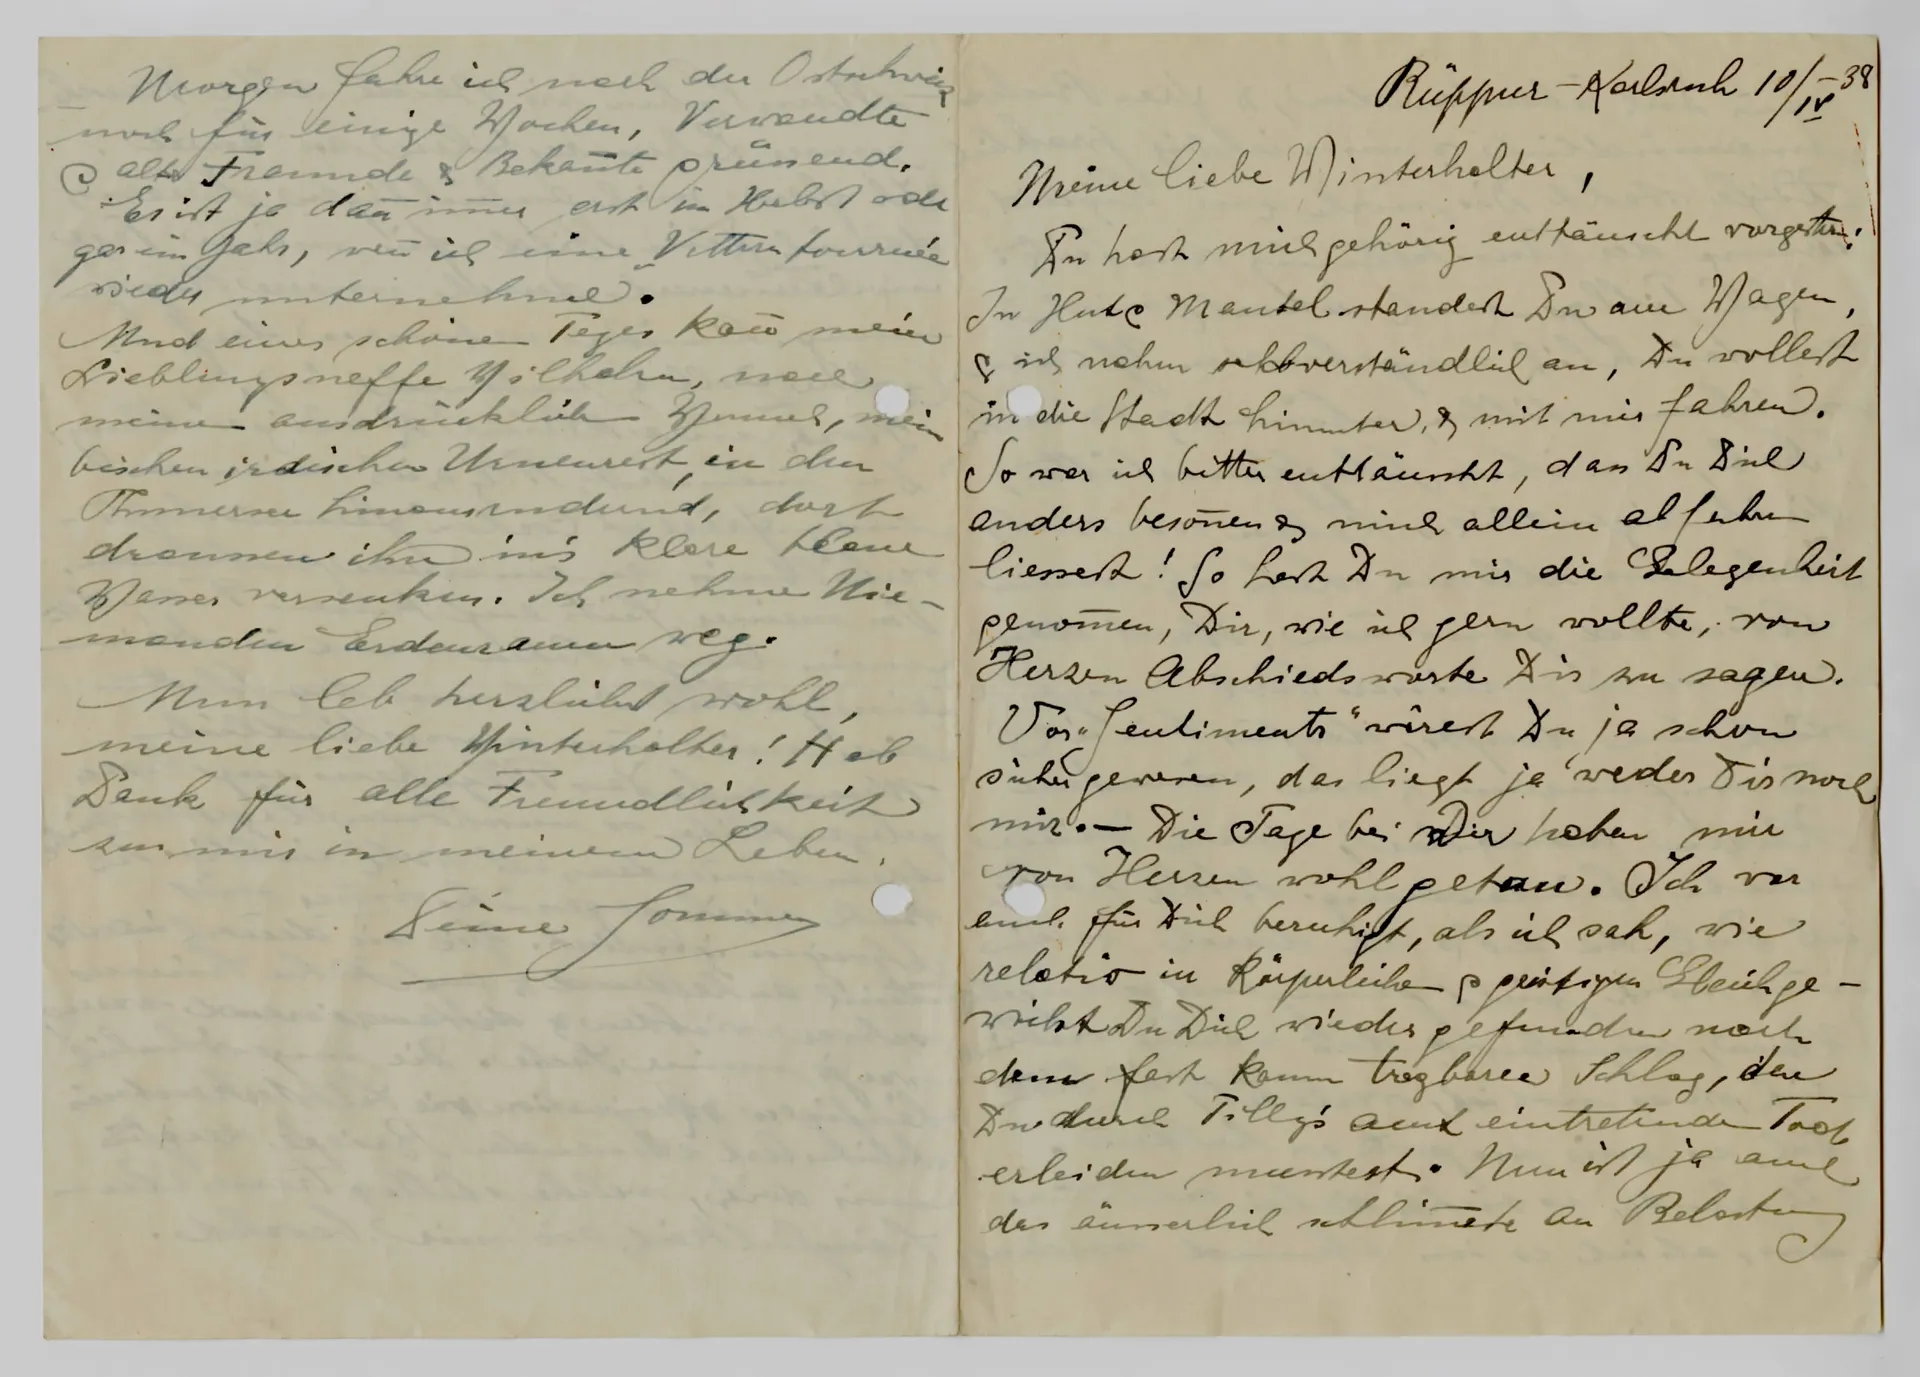 Rüppur – Karlsruh 10/IV – 38
Meine liebe Winterhalter,
Du hast mich gehörig enttäuscht vorgestern!
In Hut & Mantel standest Du am Wagen,
& ich nahm selbverständlich an, Du wollest
in die Stadt hinunter, & mit mir fahren.
So war ich bitter enttäuscht, dass Du Dich
anders beson̄en & mich allein abfahren
liessest! So hast Du mir die Gelegenheit
genom̄en, Dir, wie ich gern wollte, von
Herzen Abschiedsworte Dir zu sagen.
Vor „Sentiments“ wärest Du ja schon
sicher gewesen, das liegt ja weder Dir noch
mir. – Die Tage bei Dir haben mir
von Herzen wohl getan. Ich war
auch für Dich beruhigt, als ich sah, wie
relativ in Körperlichen & geistigen Gleichge-
wicht Du Dich wieder gefunden nach
dem fast kaum tragbaren Schlag, den
Du durch Tilly's eintretenden Tod
erleiden musstest. Nun ist ja auch
das äusserlich schlim̄ste an Belastung
Morgen fahre ich nach der Ostschweiz
noch für einige Wochen, Verwandte
& alte Freunde & Bekan̄te grüssend.
Es ist ja dan̄ im̄er erst im Herbst oder
gar im Jahr, wen̄ ich eine „Vettern tournée
wieder unternehme.
Und eines schönen Tages kan̄ mein
Lieblingsneffe Wilhelm, nach
meinem ausdrücklichen Wunsch, mein
bischen irdischen Urnenrest, in den
hinausrudernd, dort
draussen ihn in's klare blaue
Wasser versenken. Ich nehme Nie-
manden Erdenraum weg.
Nun leb herzlichst wohl,
meine liebe Winterhalter! Hab
Dank für alle Freundlichkeit
zu mir in meinem Leben.
Deine Sommer